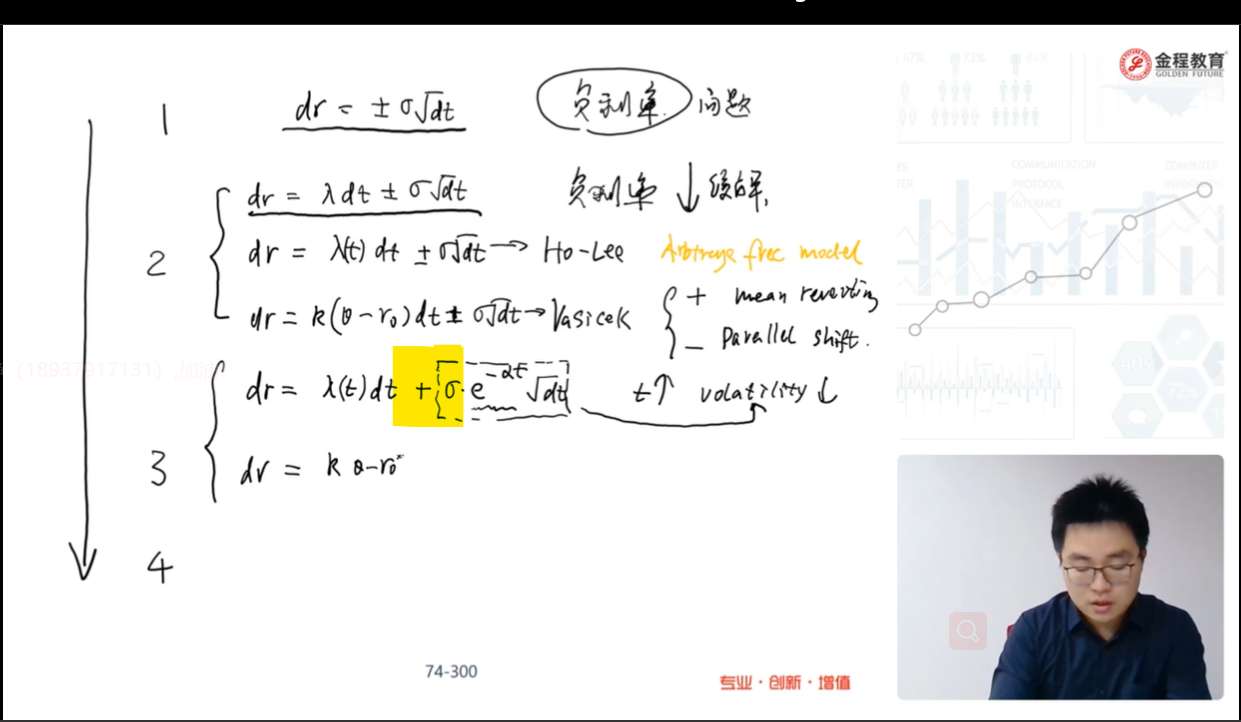 金程教育
GOLDEN FUTURE
1 dr = ± σ√dt 负利率 问题
dr = λ dt ± σ√dt 负利率 ↓ 缓解,
2 dr = λ(t) dt ± σ√dt → Ho-Lee Arbitrage free model
dr = k(θ-r₀)dt ± σ√dt → Vasicek + mean reverting
- Parallel shift.
dr = λ(t)dt + σ·e^-αt √dt t↑ volatility ↓
3 dr = k θ-r₀
4
74-300
专业·创新·增值